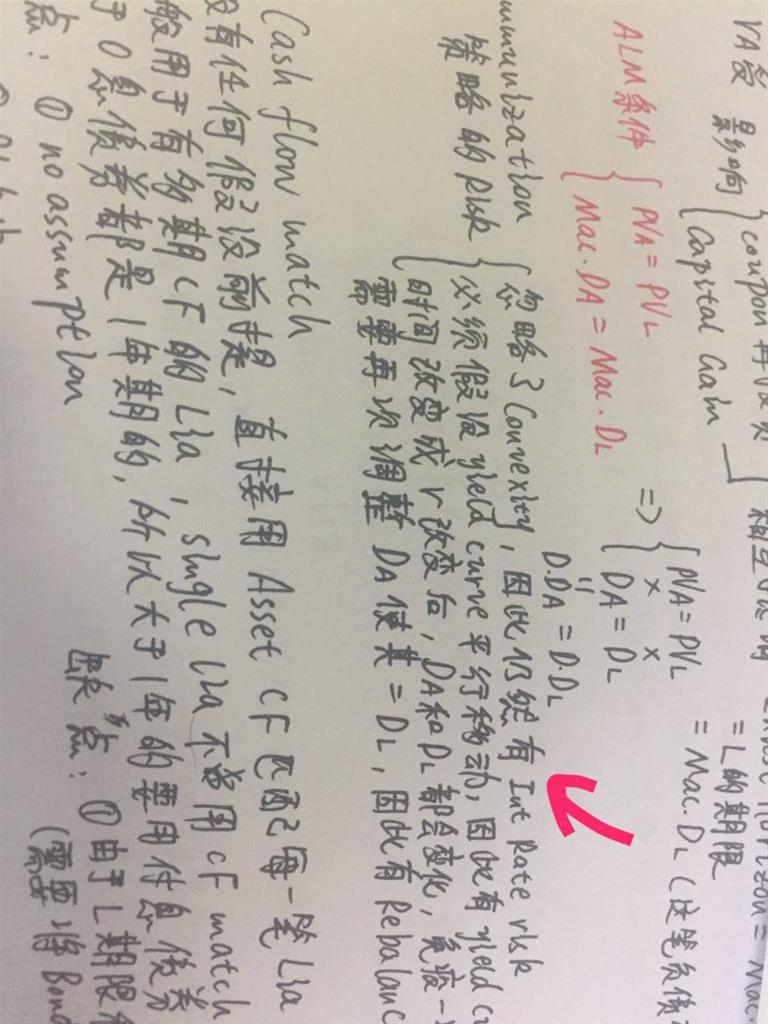 VA受影响 { coupon 再投资
Capital Gain
相互
= L的期限
= Mac. DL (这笔负债
ALM条件 { PVA = PVL
Mac. DA = Mac. DL
=> { PVA = PVL
× ×
DA = DL
=
D.DA = D.DL
mmunization
策略的Risk
忽略了Convexity, 因此仍然有 Int Rate risk
必须假设yield curve平行移动, 因此有yield cu
时间改变或r改变后, DA和DL都会变化, 免疫一
需要再次调整DA使其=DL, 因此有Rebalanc
Cash flow match
没有任何假设前提, 直接用 Asset CF匹配每一笔Lia
般用于有多期CF的Lia, single Lia不常用CF match
于0息债券都是1年期的, 所以大于1年的要用付息债券
点: ① no assumption
缺点: ①由于L期限
(需要将Bond